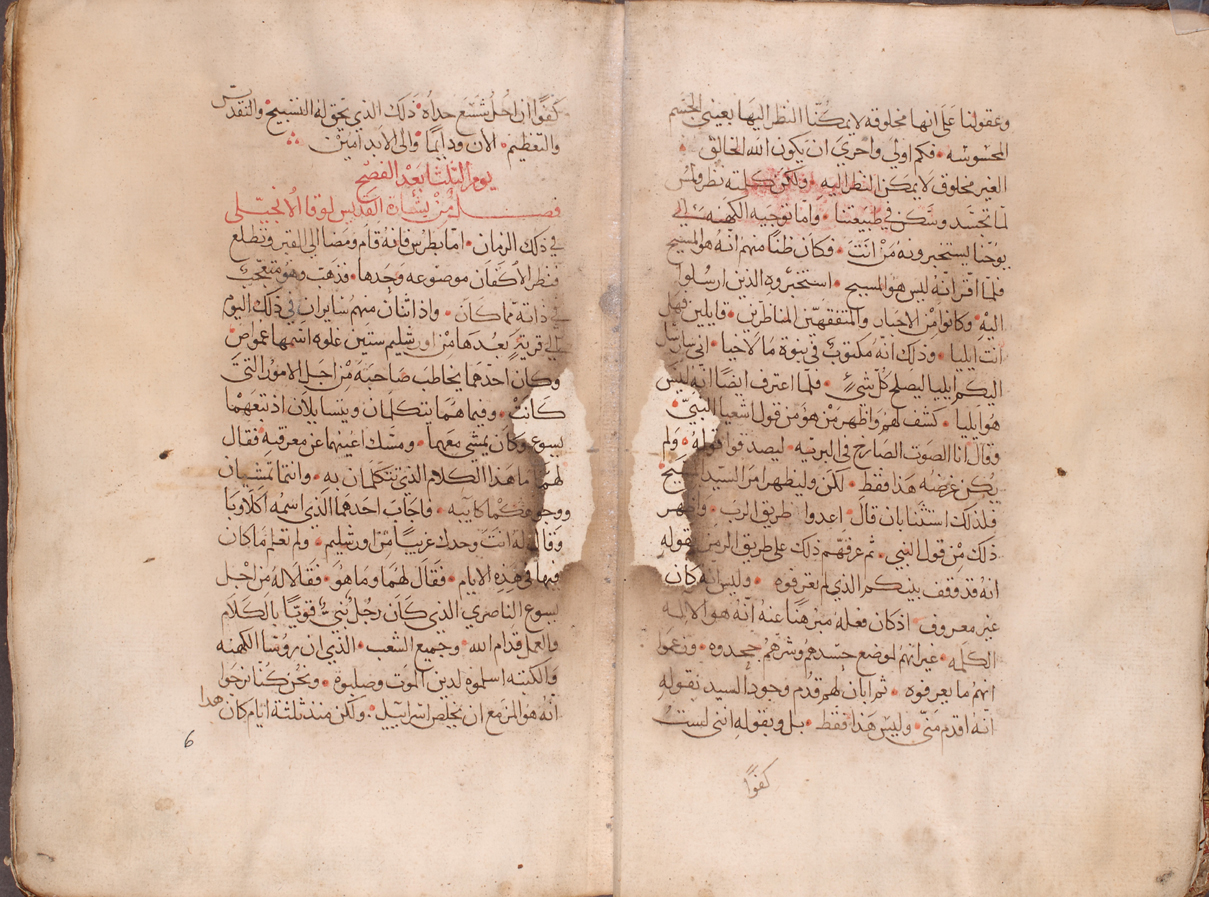 وعقولنا على انها مخلوقه لا يمكننا النظر اليها بعيني الجسم
المحسوسه • فكم اولي واحري ان يكون الله الخالق •
الغير مخلوق لا يمكن النظر اليه • ولكن كلمته نظر ولمس
لما تجسد وسكن في طبيعتنا • واما توجيه الكهنه الي
يوحنا يستخبرونه من انت • فكان ظنا منهم انه هو المسيح
فلما اقر انه ليس هو المسيح • استخبروه الذين ارسلوا
اليه • وكانوا من الاحبار والمتفقهين المناظرين • قايلين فهل
انت ايليا • وذلك انه مكتوب في نبوة ملاخيا • اني سارسل
اليكم ايليا ليصلح كل شيٍ • فلما اعترف ايضا انه ليس
هو ايليا • كشف لهم واظهر من هو من قول اشعيا النبي •
وقال انا الصوت الصارخ في البريه • ليصدقوا قوله • ولم
يكن غرضه هذا فقط • لكن وليظهر امر السيد المسيح
فلذلك استثنا بان قال اعدوا طريق الرب • واظهر
ذلك من قول النبي • ثم عرفهم ذلك على طريق الرمز بقوله
انه قد وقف بينكم الذي لم تعرفوه • وليس انه كان
غير معروف • اذ كان فعله مبرهنا عنه انه هو الاله
الكلمه • غير انهم لموضع حسدهم وشرهم جحدوه • وزعموا
انهم ما يعرفوه • ثم ابان لهم قدم وجود السيد بقوله
انه اقدم مني • وليس هذا فقط • بل وبقوله انني لست
كفوًا
كفوًا ان احل شسع حذاه • ذلك الذي يحق له التسبيح • والتقديس
والتعظيم • الان ودايمًا • والى الابد امين
يوم الثلثا بعد الفصح
فصل من بشارة القديس لوقا الانجيلي
في ذلك الزمان • اما بطرس فانه قام ومضا الى القبر وتطلع
فنظر الاكفان موضوعه وحدها • فذهب وهو متعجب
في ذاته مما كان • واذ اثنان منهم سايران في ذلك اليوم
الى قريةٍ بعدها من اورشليم ستين غلوه اسمها عمواص
وكان احدهما يخاطب صاحبه من اجل الامور التي
كانت • وفيما هما يتكلمان ويتسايلان اذ تبعهما
يسوع وكان يمشي معهما • ومسك اعينهما عن معرفته فقال
لهما ما هذا الكلام الذي تتكلمان به • وانتما تمشيان
ووجوهكما كايبه • واجاب احدهما الذي اسمه اكلاوبا
وقال له انت وحدك غريبًا من اورشليم • ولم تعلم ما كان
فيها في هذه الايام • فقال لهما وما هو • فقالا له من اجل
يسوع الناصري الذي كان رجل نبي قويًا بالكلام
والعمل قدام الله • وجميع الشعب • الذي ان روسا الكهنه
والكتبه اسلموه لدين الموت وصلبوه • ونحن كنا نرجوا
انه هو المزمع ان يخلص اسراييل • ولكن منذ ثلثة ايام كان هذا
6